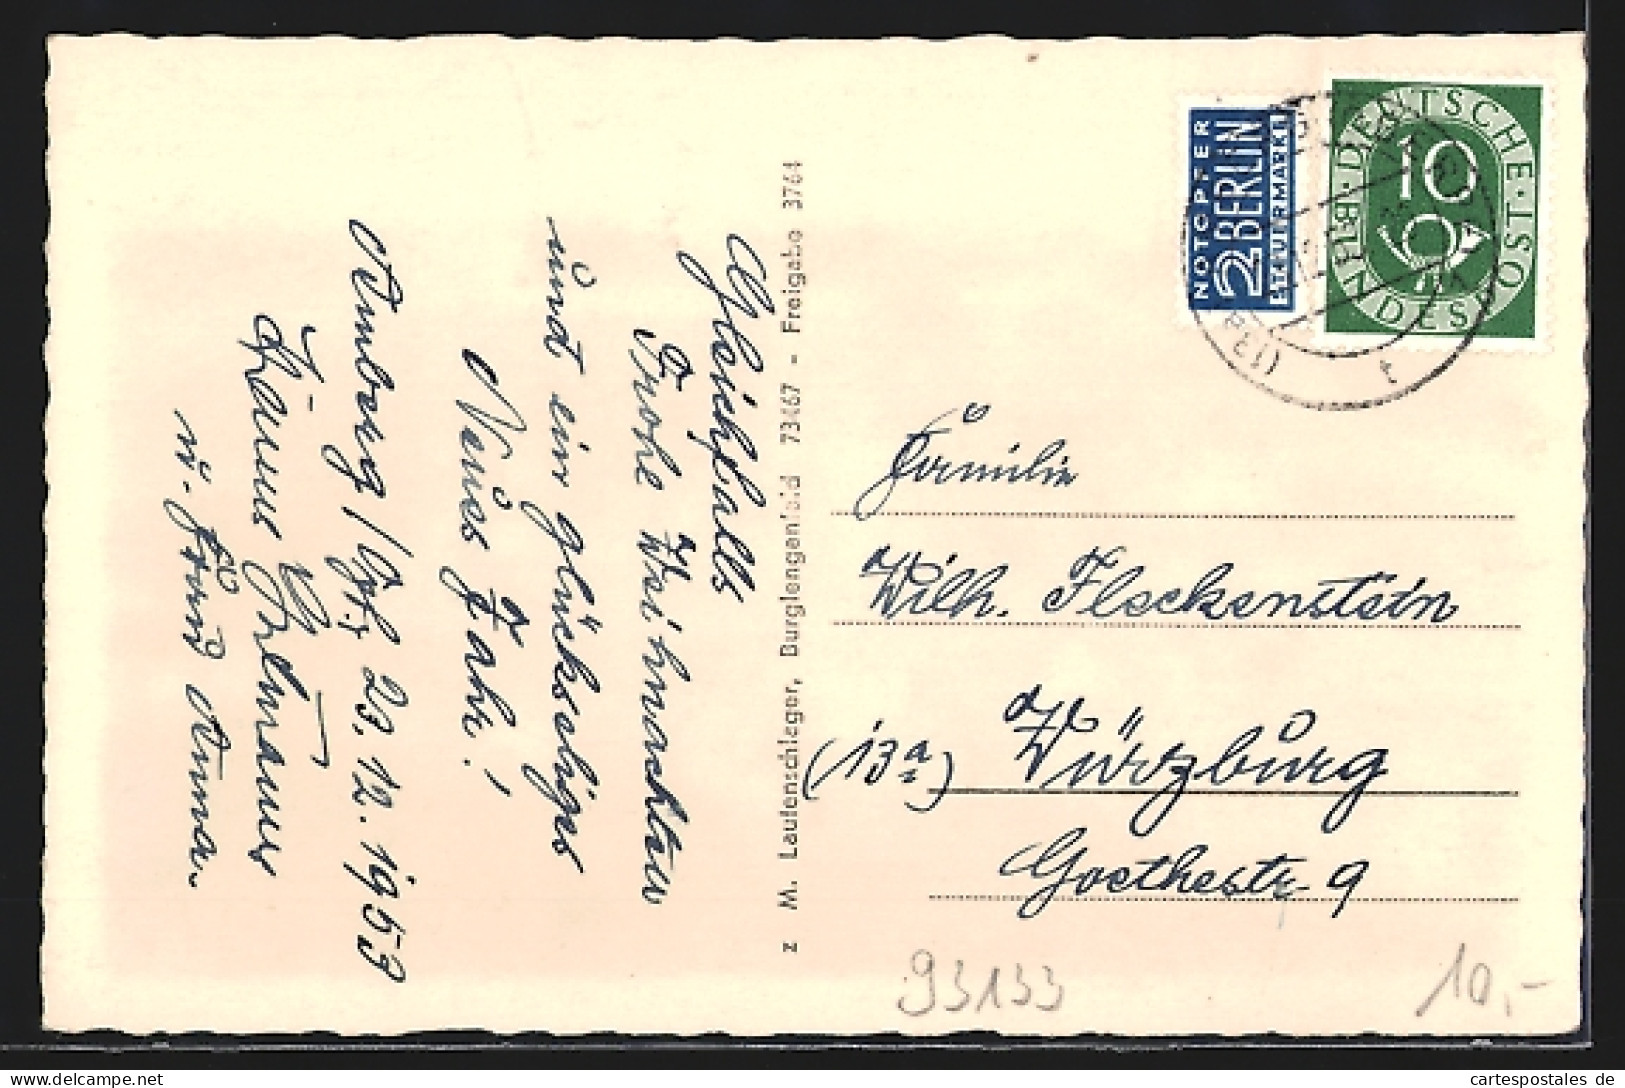 Gleichfalls
Frohe Weihnachten
und ein glückseliges
Neues Jahr!
Amberg/Opf, 23.12.1953
u. Frau Anna.
z M. Laufenschlager, Burglengenfeld 73467 - Freigabe 3764
NOTOPFER
2 BERLIN
STEUERMARKE
DEUTSCHE BUNDESPOST
10
(13a)
Familie
Wilh. Fleckenstein
(13a) Würzburg
Goethestr. 9
93133
10,-
cartespostales de